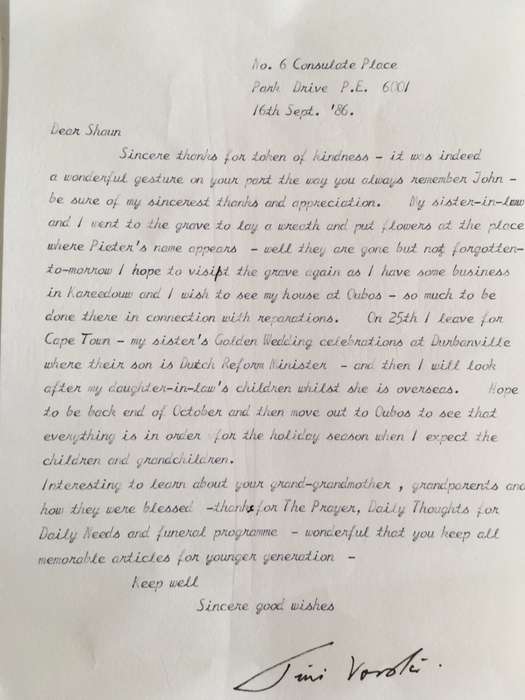 No. 6 Consulate Place
Park Drive P.E. 6001
16th Sept. '86.
Dear Shaun
Sincere thanks for token of kindness - it was indeed
a wonderful gesture on your part the way you always remember John -
be sure of my sincerest thanks and appreciation. My sister-in-law
and I went to the grave to lay a wreath and put flowers at the place
where Pieter's name appears - well they are gone but not forgotten-
to-morrow I hope to visipt the grave again as I have some business
in Kareedouw and I wish to see my house at Oubos - so much to be
done there in connection with reparations. On 25th I leave for
Cape Town - my sister's Golden Wedding celebrations at Durbanville
where their son is Dutch Reform Minister - and then I will look
after my daughter-in-law's children whilst she is overseas. Hope
to be back end of October and then move out to Oubos to see that
everything is in order for the holiday season when I expect the
children and grandchildren.
Interesting to learn about your grand-grandmother , grandparents and
how they were blessed -thanks for The Prayer, Daily Thoughts for
Daily Needs and funeral programme - wonderful that you keep all
memorable articles for younger generation -
Keep well
Sincere good wishes
Tini Vorster.